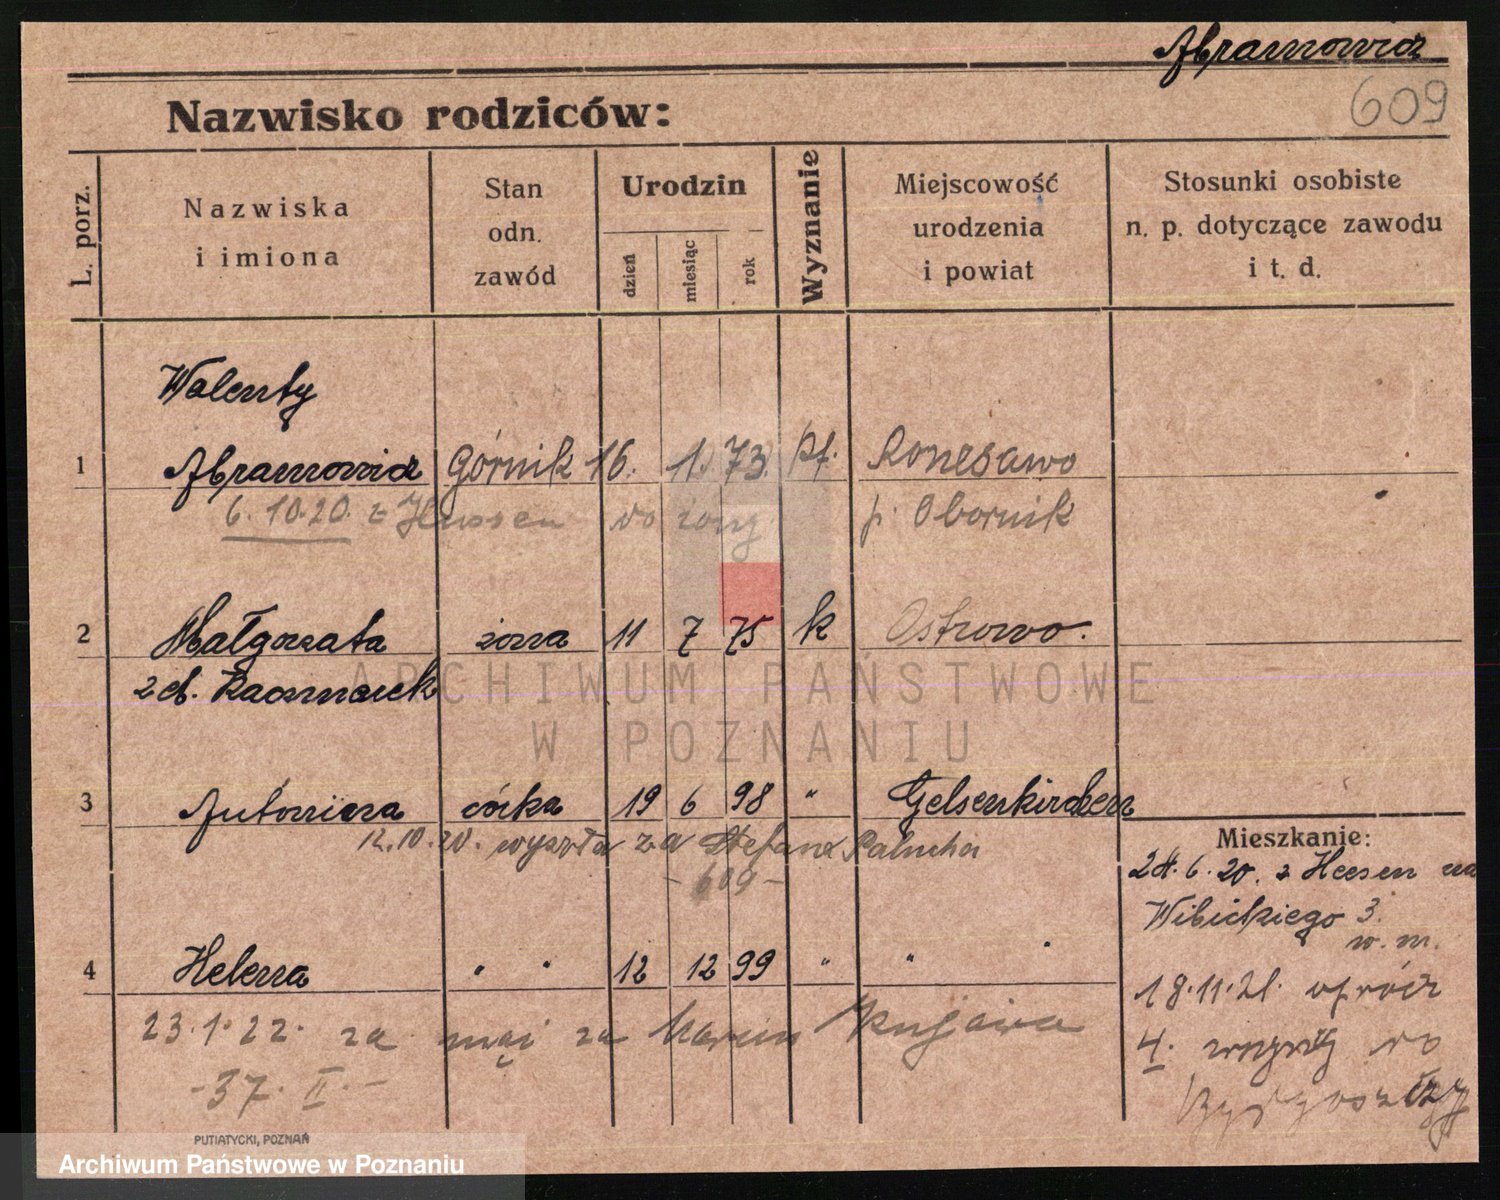 Abramowicz
609
Nazwisko rodziców:
L. porz.
Nazwiska
i imiona
Stan
odn.
zawód
Urodzin
dzień
miesiąc
rok
Wyznanie
Miejscowość
urodzenia
i powiat
Stosunki osobiste
n. p. dotyczące zawodu
i t. d.
Walenty
1 Abramowicz Górnik 16. 1. 73.
6.10.20. z do żony p. Obornik
2 Małgorzata żona 11 7 75 k Ostrowo.
z d. Kaczmarek
ARCHIWUM PAŃSTWOWE
W POZNANIU
3 Antonina córka 19 6 98 " Gelsenkirchen
12.10.20. wyszła za Stefana Palucha
-609-
Mieszkanie:
24.6.20. z na
Wibickiego 3.
w. m.
4 Helena " " 12 12 99 " " "
18.11.21. oprócz
23.1.22. za mąż za Marcin
4. do
-37. II.-
Bydgoszczy
PUTIATYCKI, POZNAŃ
Archiwum Państwowe w Poznaniu